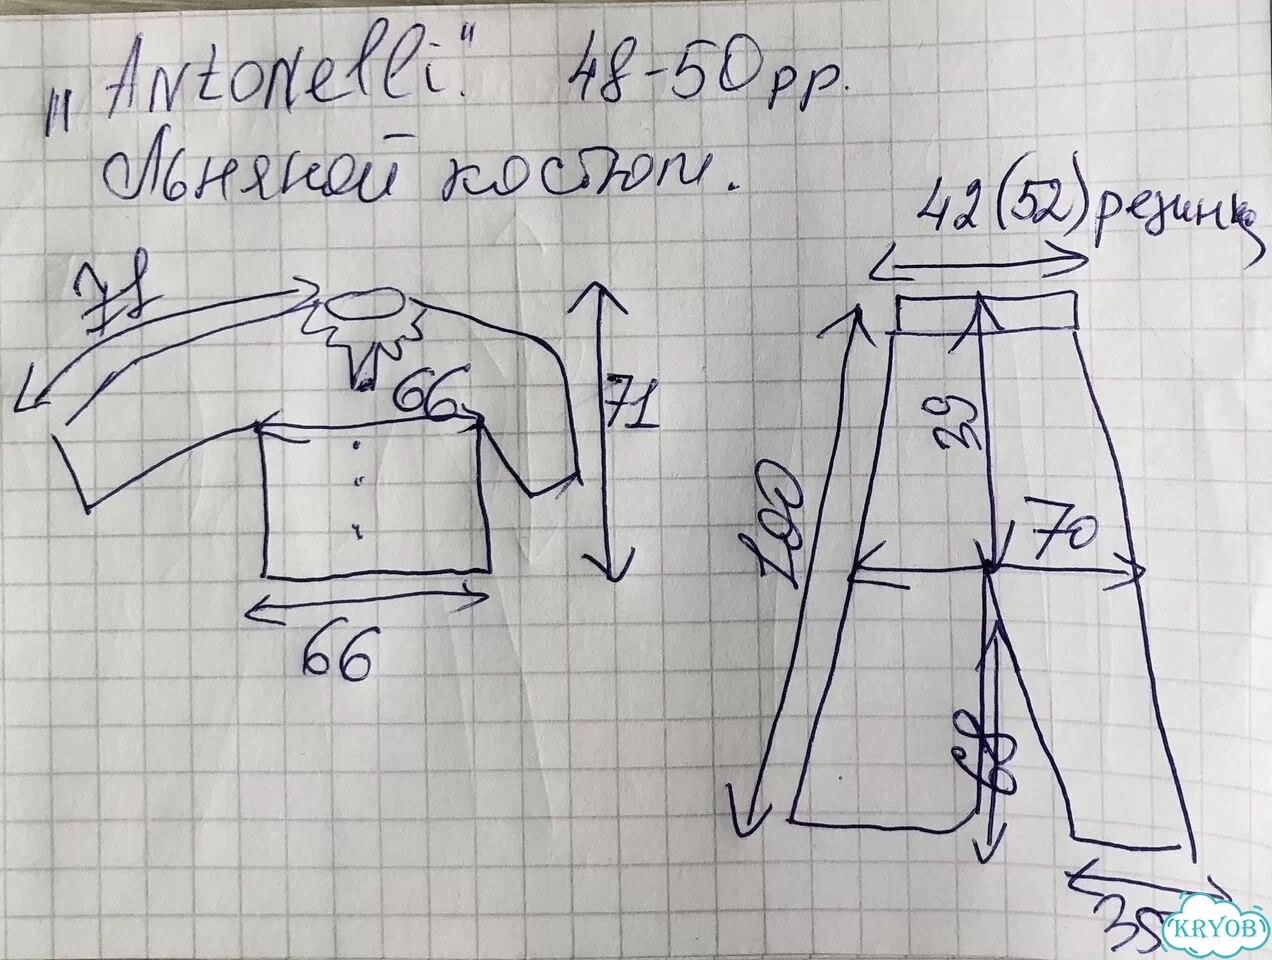 „Antonelli." 48-50рр.
Льняной костюм.
42(52)резинка
78
66
71
66
39
100
70
68
35
KRYOB